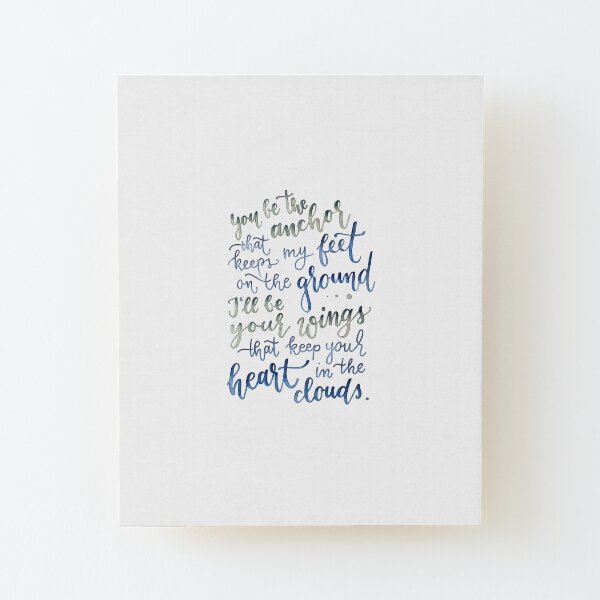 you be the
anchor
that
keeps my feet
on the ground
I'll be
your wings
that keep your
heart in the
clouds.